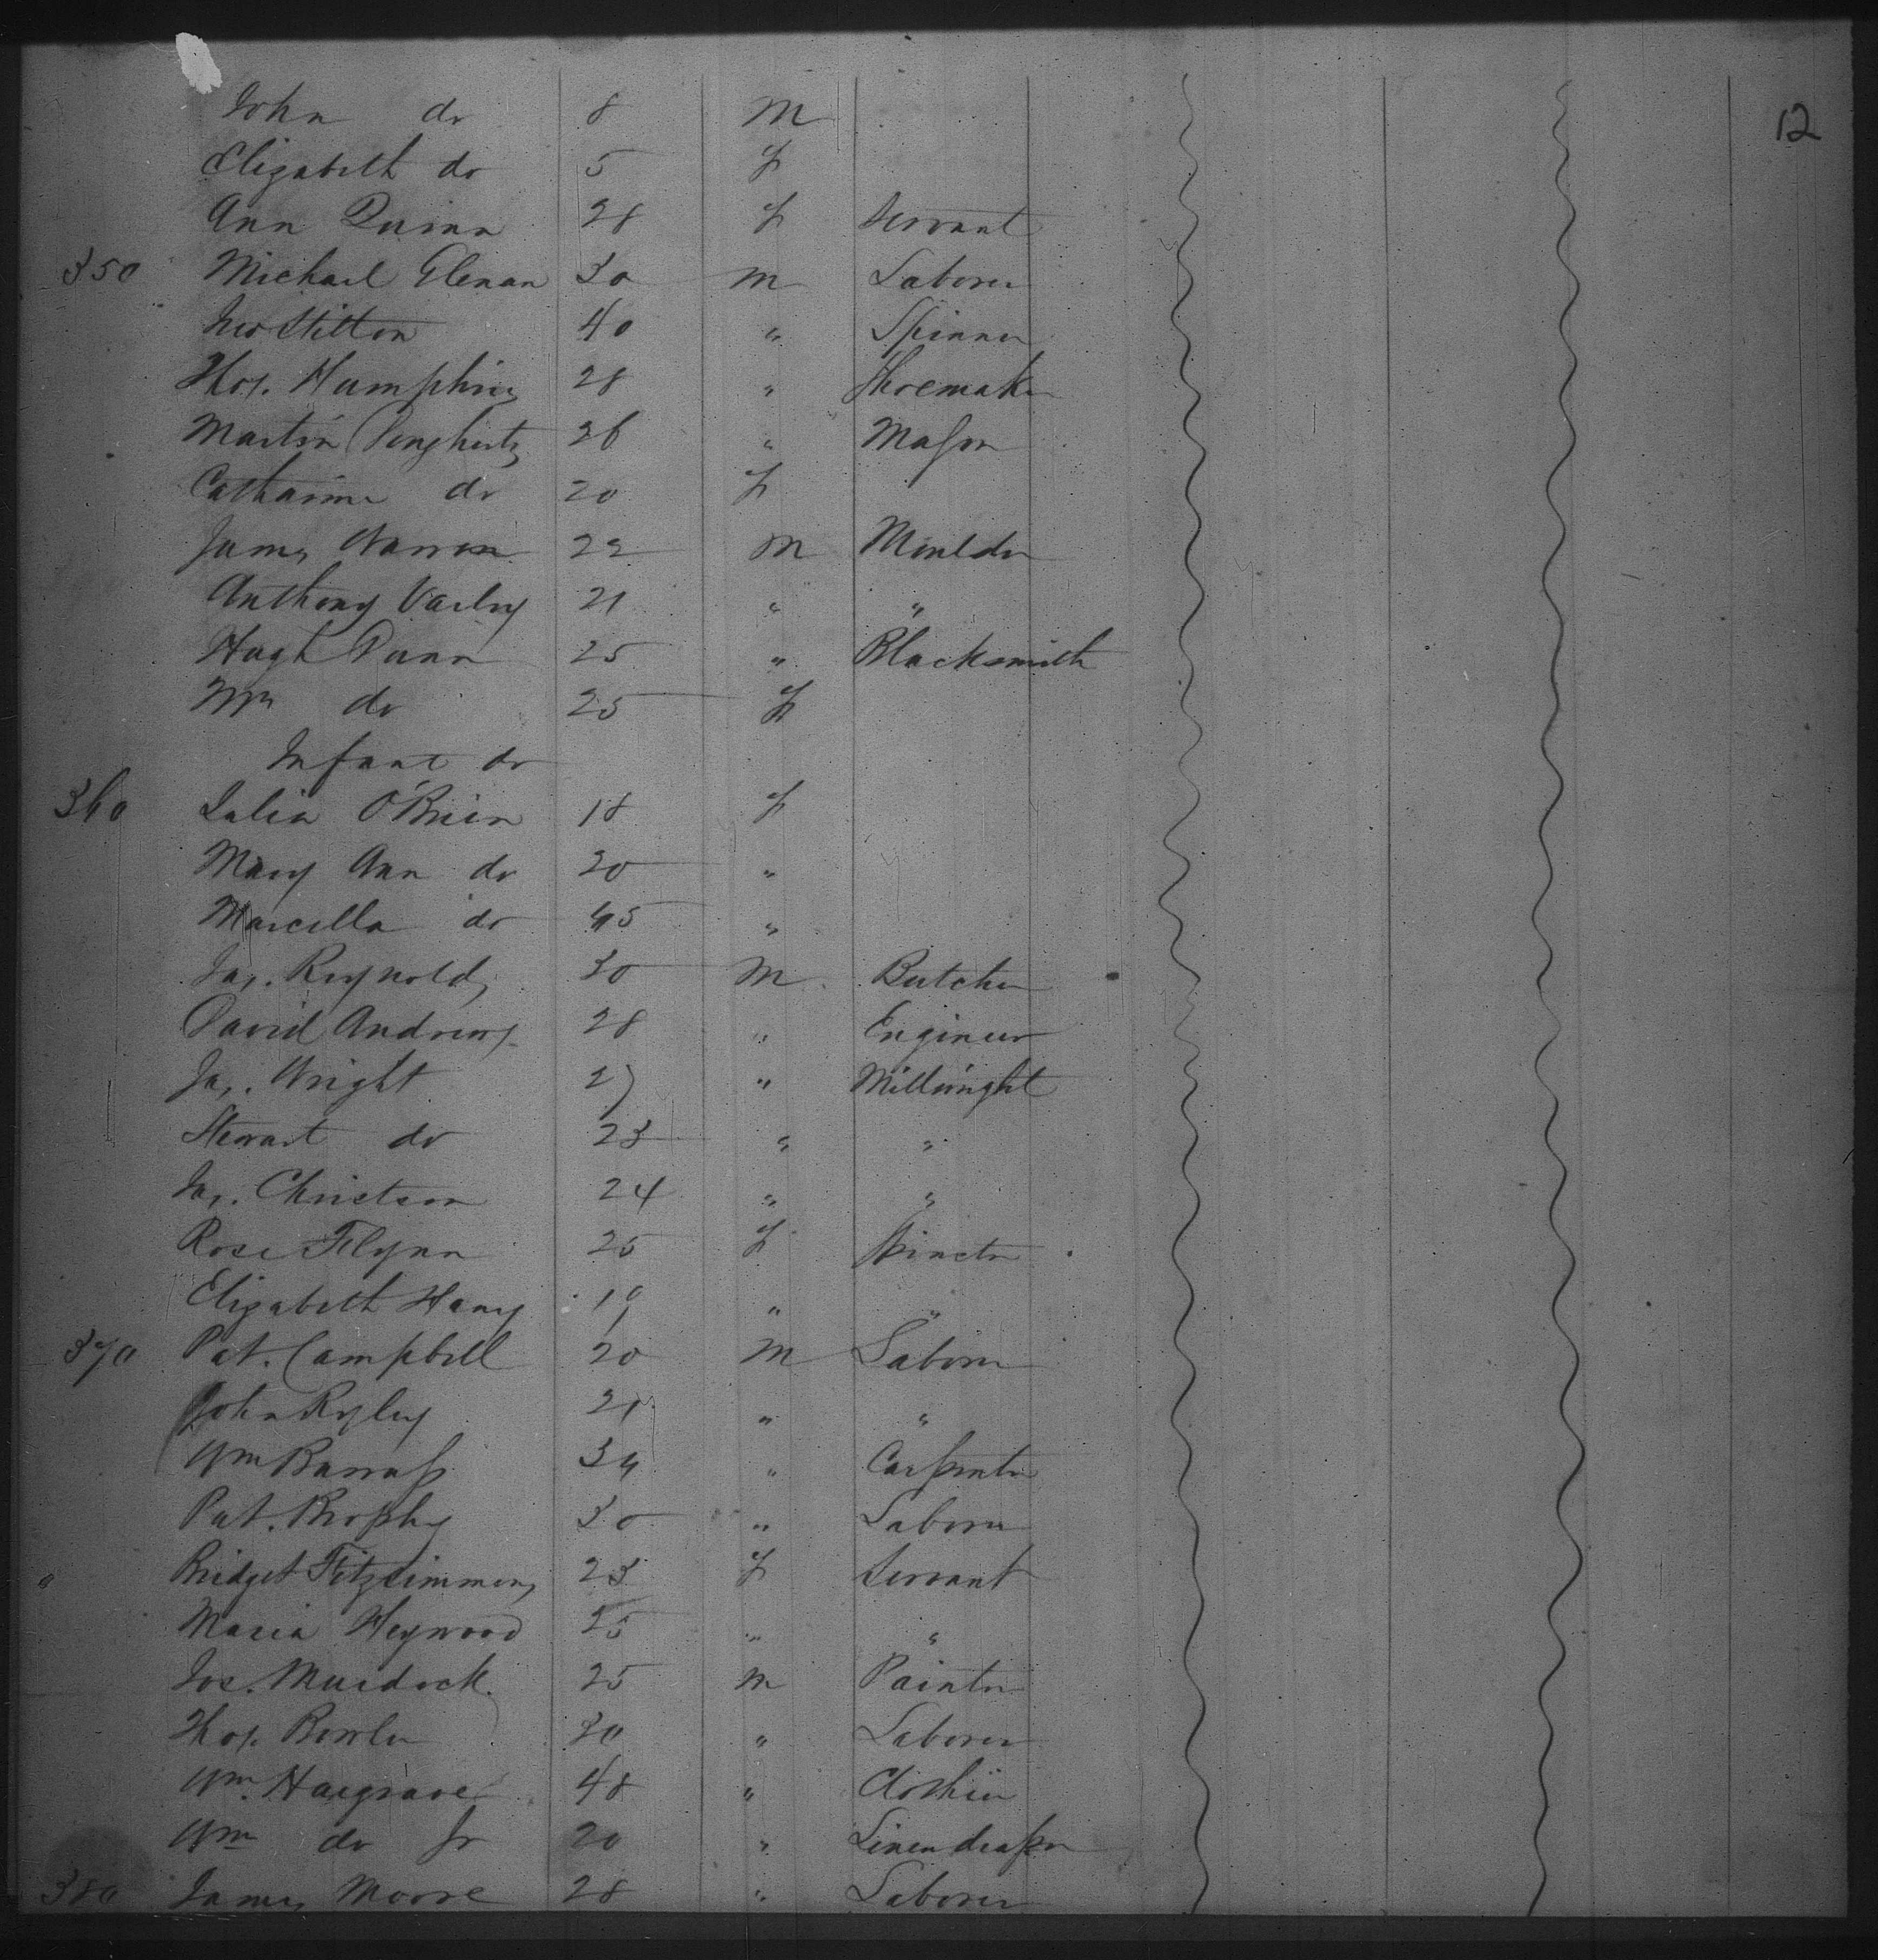 12
John do 8 M
Elizabeth do 5 f
Ann Quinn 28 f Servant
350 Michael Glenan 30 m Laborer
Jno Stitton 40 " Spinner
Thos. Humphries 28 " Shoemaker
Martin 26 " Mason
Catharine do 20 f
James Warren 22 M Moulder
Anthony Varley 21 " "
Hugh Dunn 25 " Blacksmith
Mrs do 25 f
Infant do
360 Julia O'Brien 18 f
Mary Ann do 20 "
Marcella do 45 "
Jas. Reynolds 30 M Butcher
David Andrews 28 " Engineer
Jas. Wright 27 " Millwright
Stewart do 23 " "
Jas. Christson 24 " "
Rose Flynn 25 f Spinster
Elizabeth 19 " "
370 Pat. Campbell 20 M Laborer
John Ryley 21 " "
Wm Barrass 34 " Carpenter
Pat. Brophy 30 " Laborer
" Bridget Fitzsimmons 23 f Servant
Maria Heywood 25 " "
Jos. Murdock 25 m Painter
Thos. Bowler 30 " Laborer
Wm. Hargrave 48 " Clothier
Wm do Jr 20 " Linen draper
380 James Moore 28 " Laborer